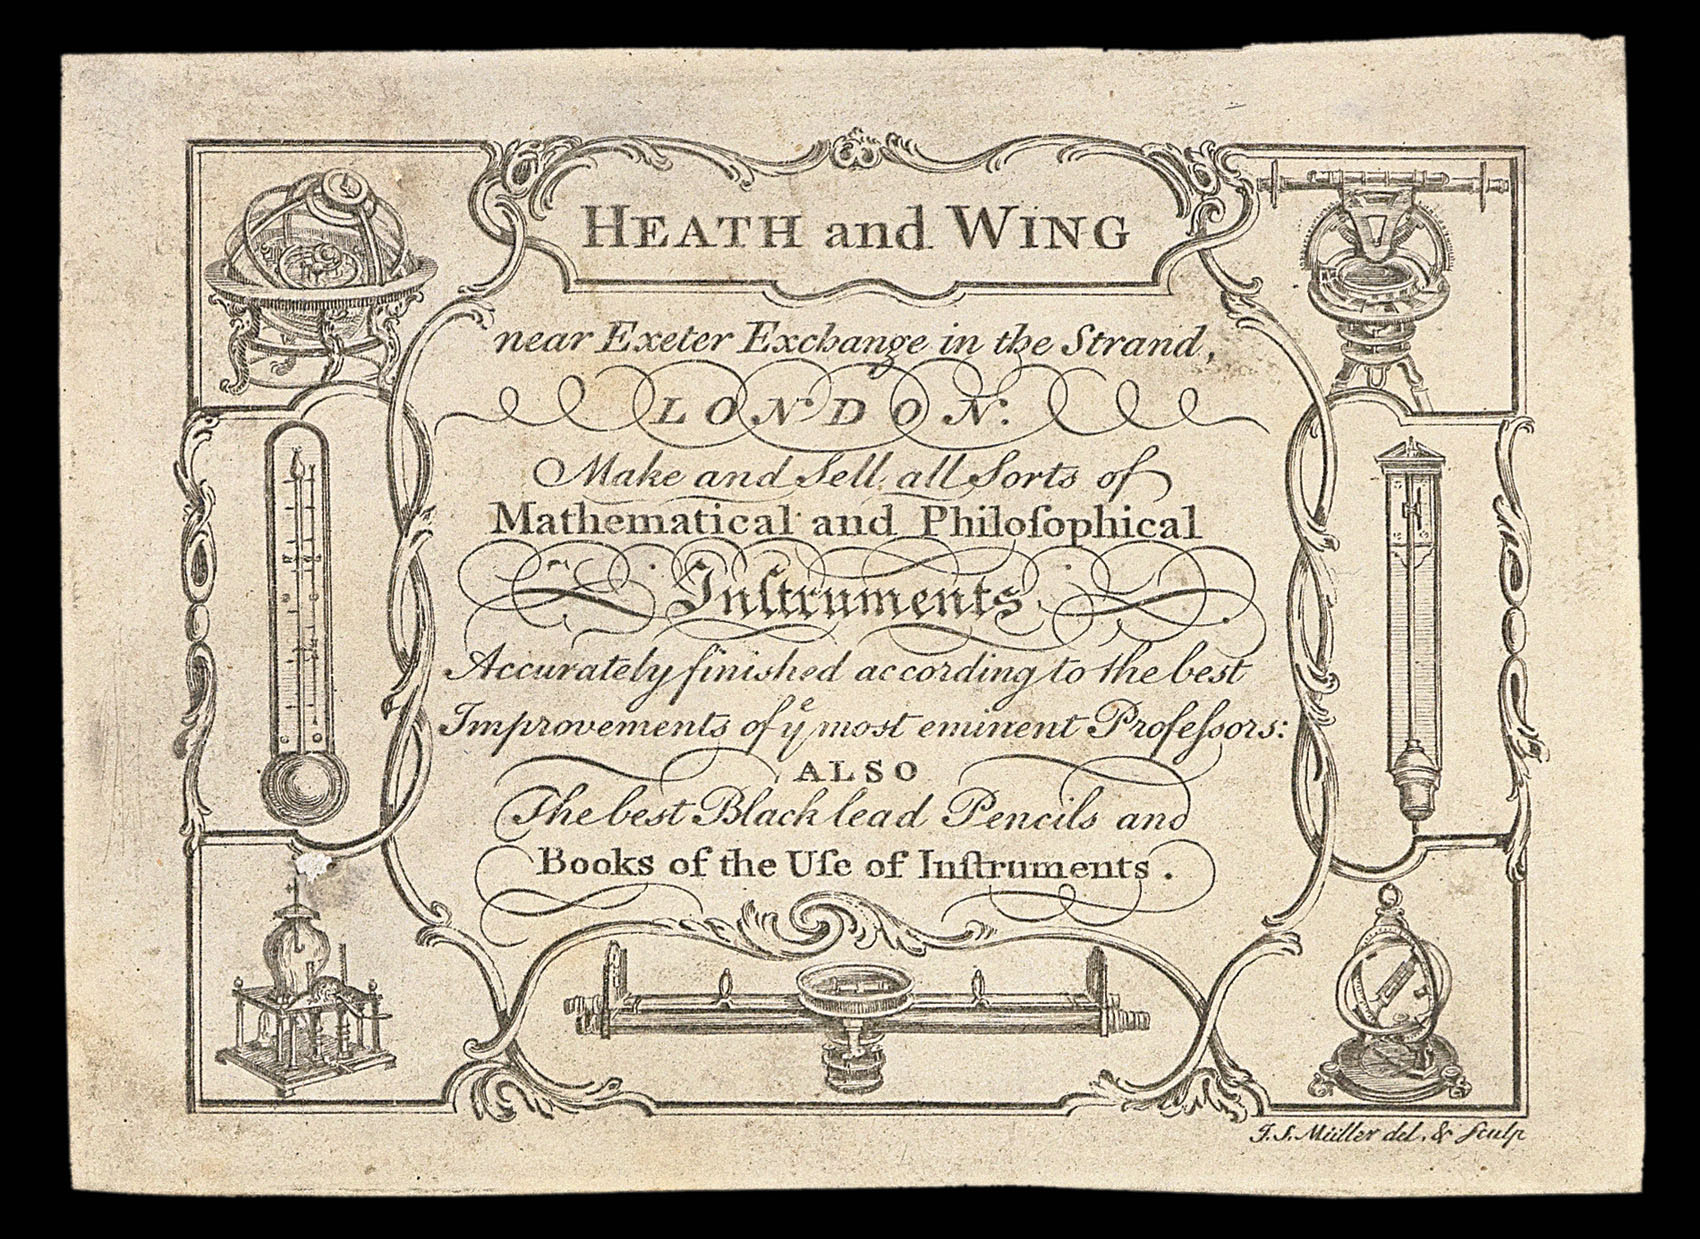 HEATH and WING
near Exeter Exchange in the Strand,
LONDON.
Make and Sell all Sorts of
Mathematical and Philoſophical
Inſtruments
Accurately finished according to the best
Improvements of yͤ most eminent Profeſsors:
ALSO
The best Black lead Pencils and
Books of the Uſe of Inſtruments.
J. S. Müller del. & Sculp